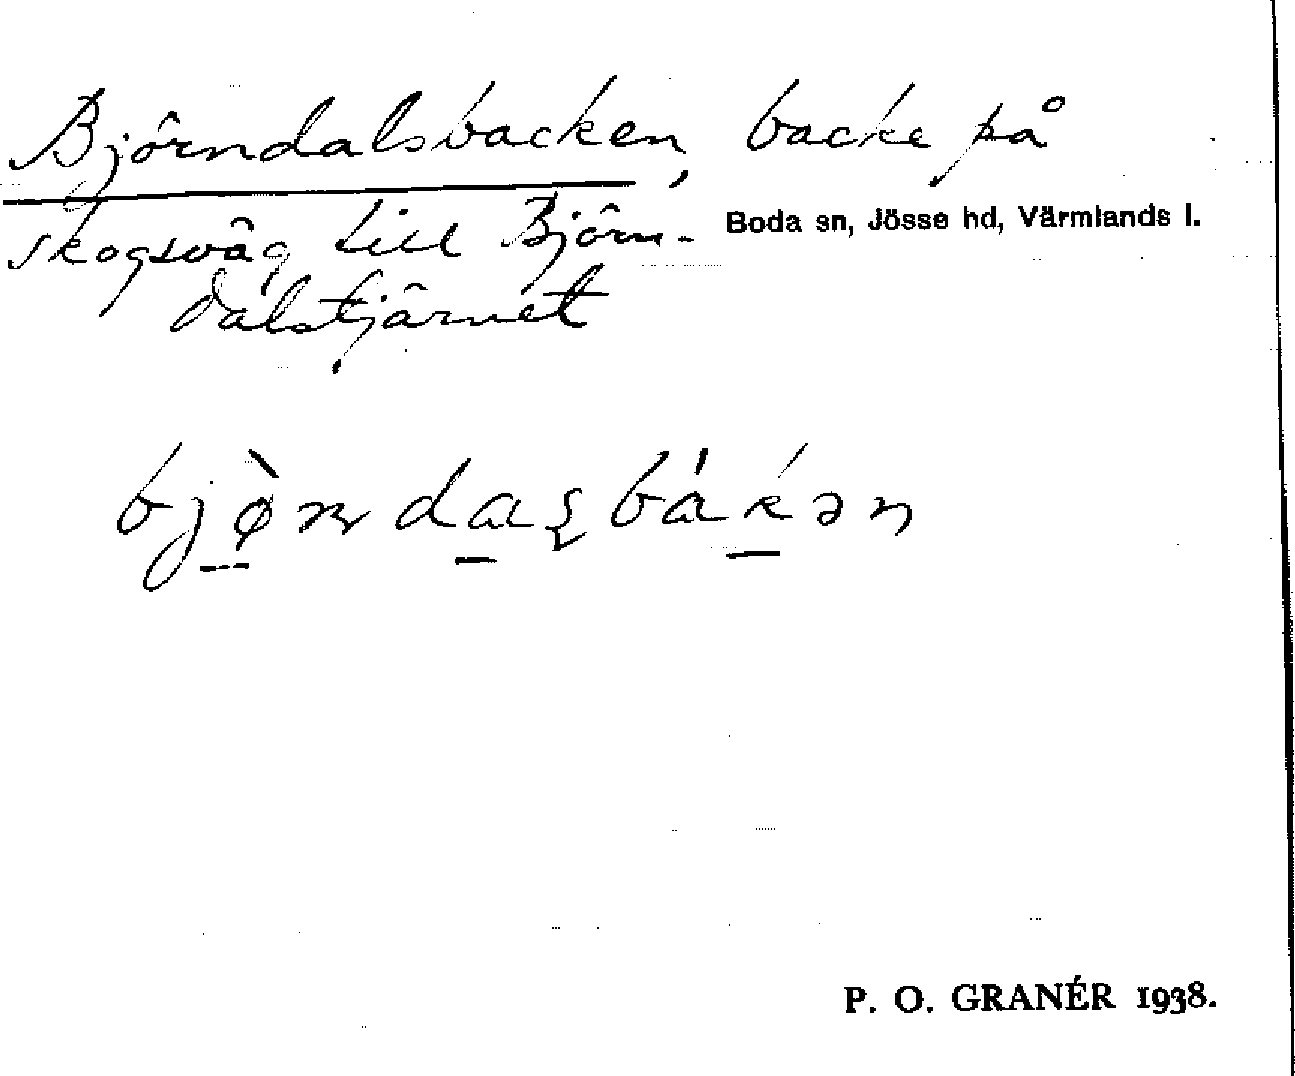 Björndalsbacken, backe på
skogsväg till Björn-
dalstjärnet
Boda sn, Jösse hd, Värmlands l.
P. O. GRANÉR 1938.